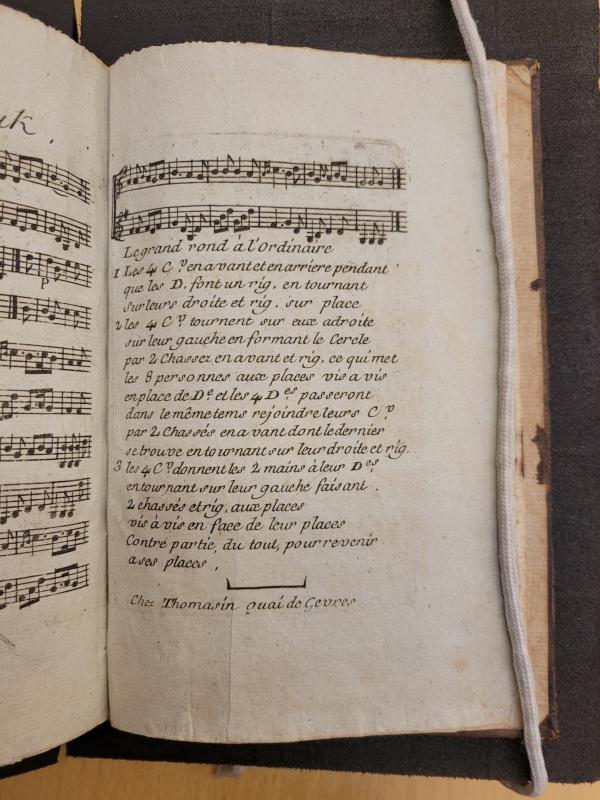 uk.
P
Le grand rond à l'Ordinaire
1 Les 4 C.rs en avant et en arriere pendant
que les D. font un rig. en tournant
sur leurs droite et rig. sur place
2 les 4 C.rs tournent sur eux adroite
sur leur gauche en formant le Cercle
par 2 Chassez en avant et rig. ce qui met
les 8 personnes aux places vis a vis
en place de De. et les 4 Des. passeront
dans le même tems rejoindre leurs C.rs
par 2 Chassés en avant dont le dernier
se trouve en tournant sur leur droite et rig.
3 les 4 C.rs donnent les 2 mains à leur Des.
en tournant sur leur gauche faisant.
2 chassés et rig. aux places
vis à vis en face de leur places
Contre partie, du tout, pour revenir
a ses places.
Chez Thomasin Quai de Gevres